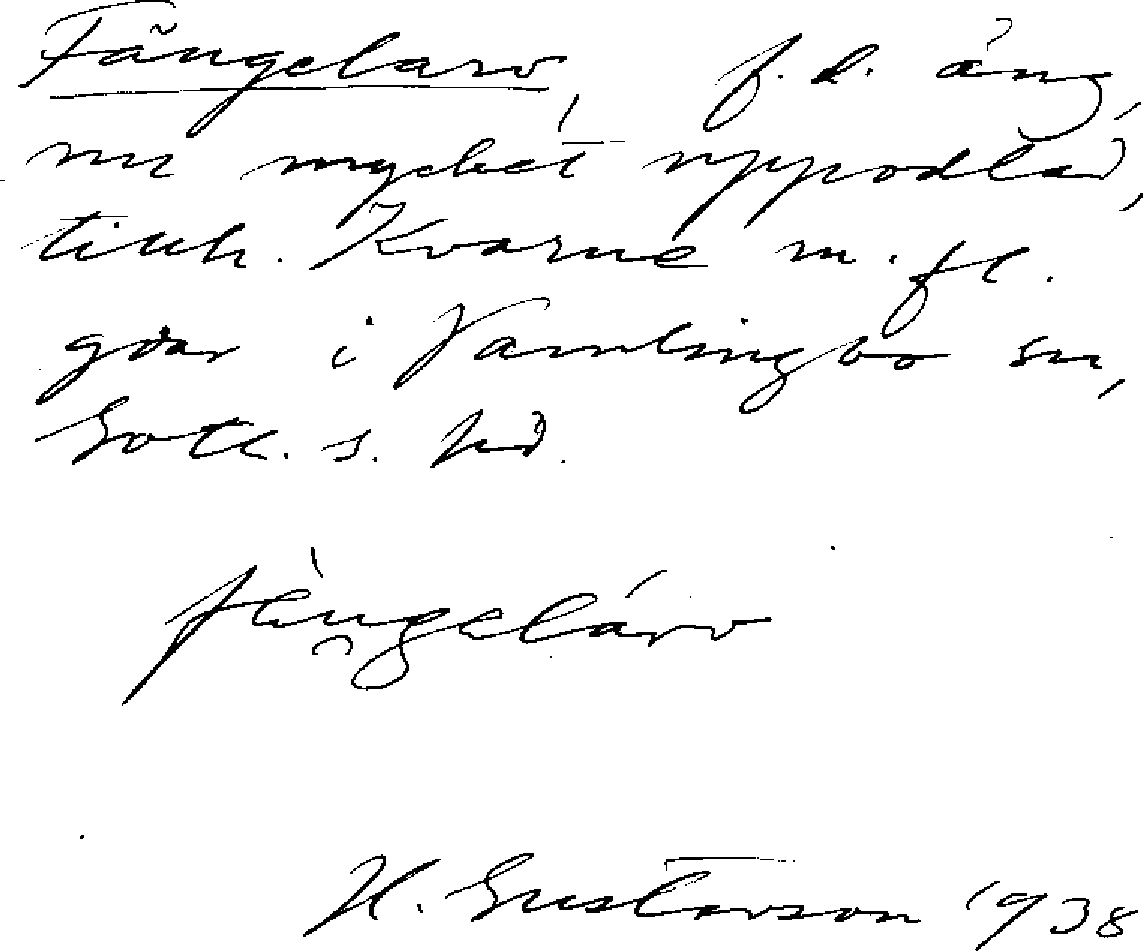 Fängelarv, f.d. äng,
nu mycket uppodlad,
tillh. Kvarne m.fl.
gdar i Vamlingbo sn,
Gotl. s. hd.
fèngelárv
H. Gustavson 1938